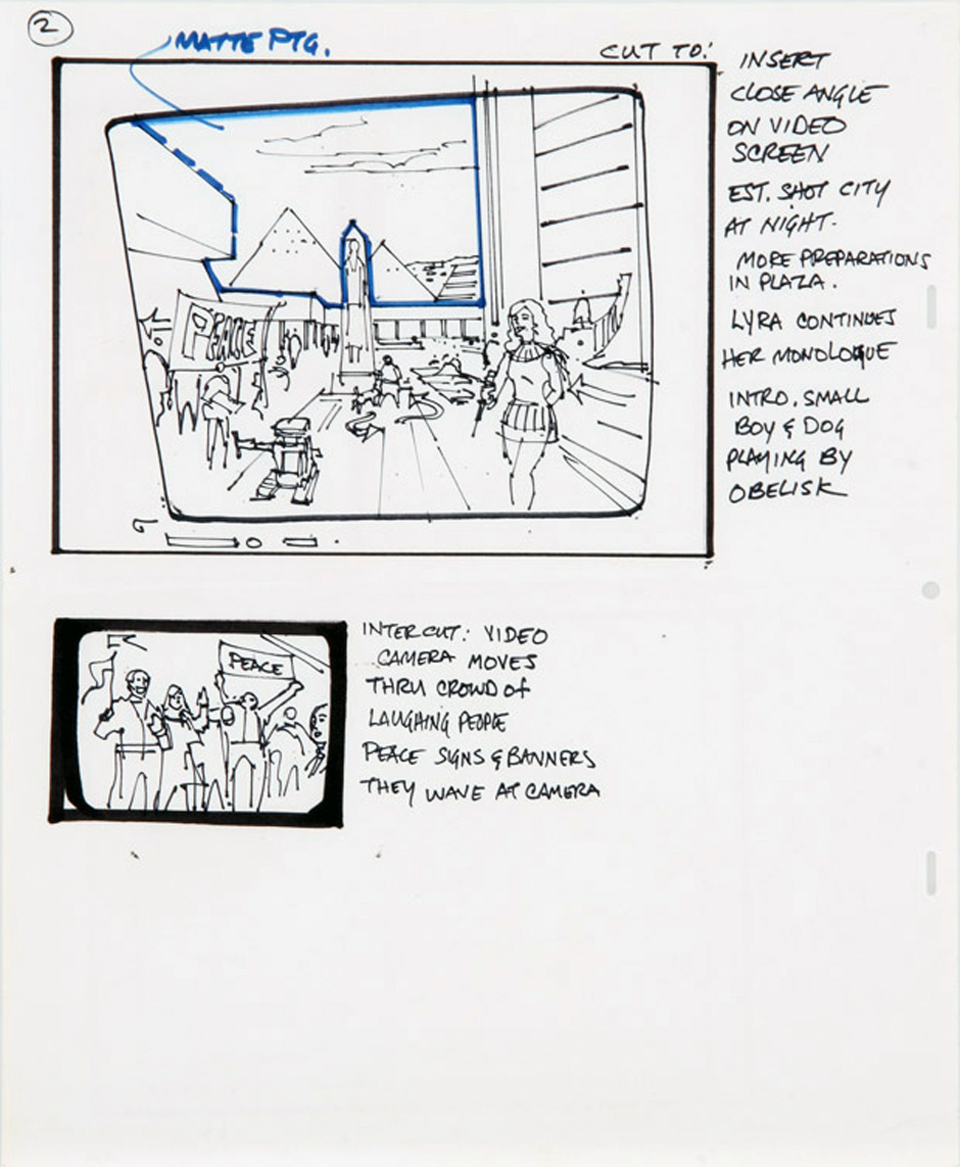 2
MATTE PTG.
CUT TO:
INSERT
CLOSE ANGLE
ON VIDEO
SCREEN
EST. SHOT CITY
AT NIGHT.
MORE PREPARATIONS
IN PLAZA.
LYRA CONTINUES
HER MONOLOGUE
INTRO. SMALL
BOY & DOG
PLAYING BY
OBELISK
PEACE
INTERCUT: VIDEO
CAMERA MOVES
THRU CROWD OF
LAUGHING PEOPLE
PEACE SIGNS & BANNERS
THEY WAVE AT CAMERA
PEACE